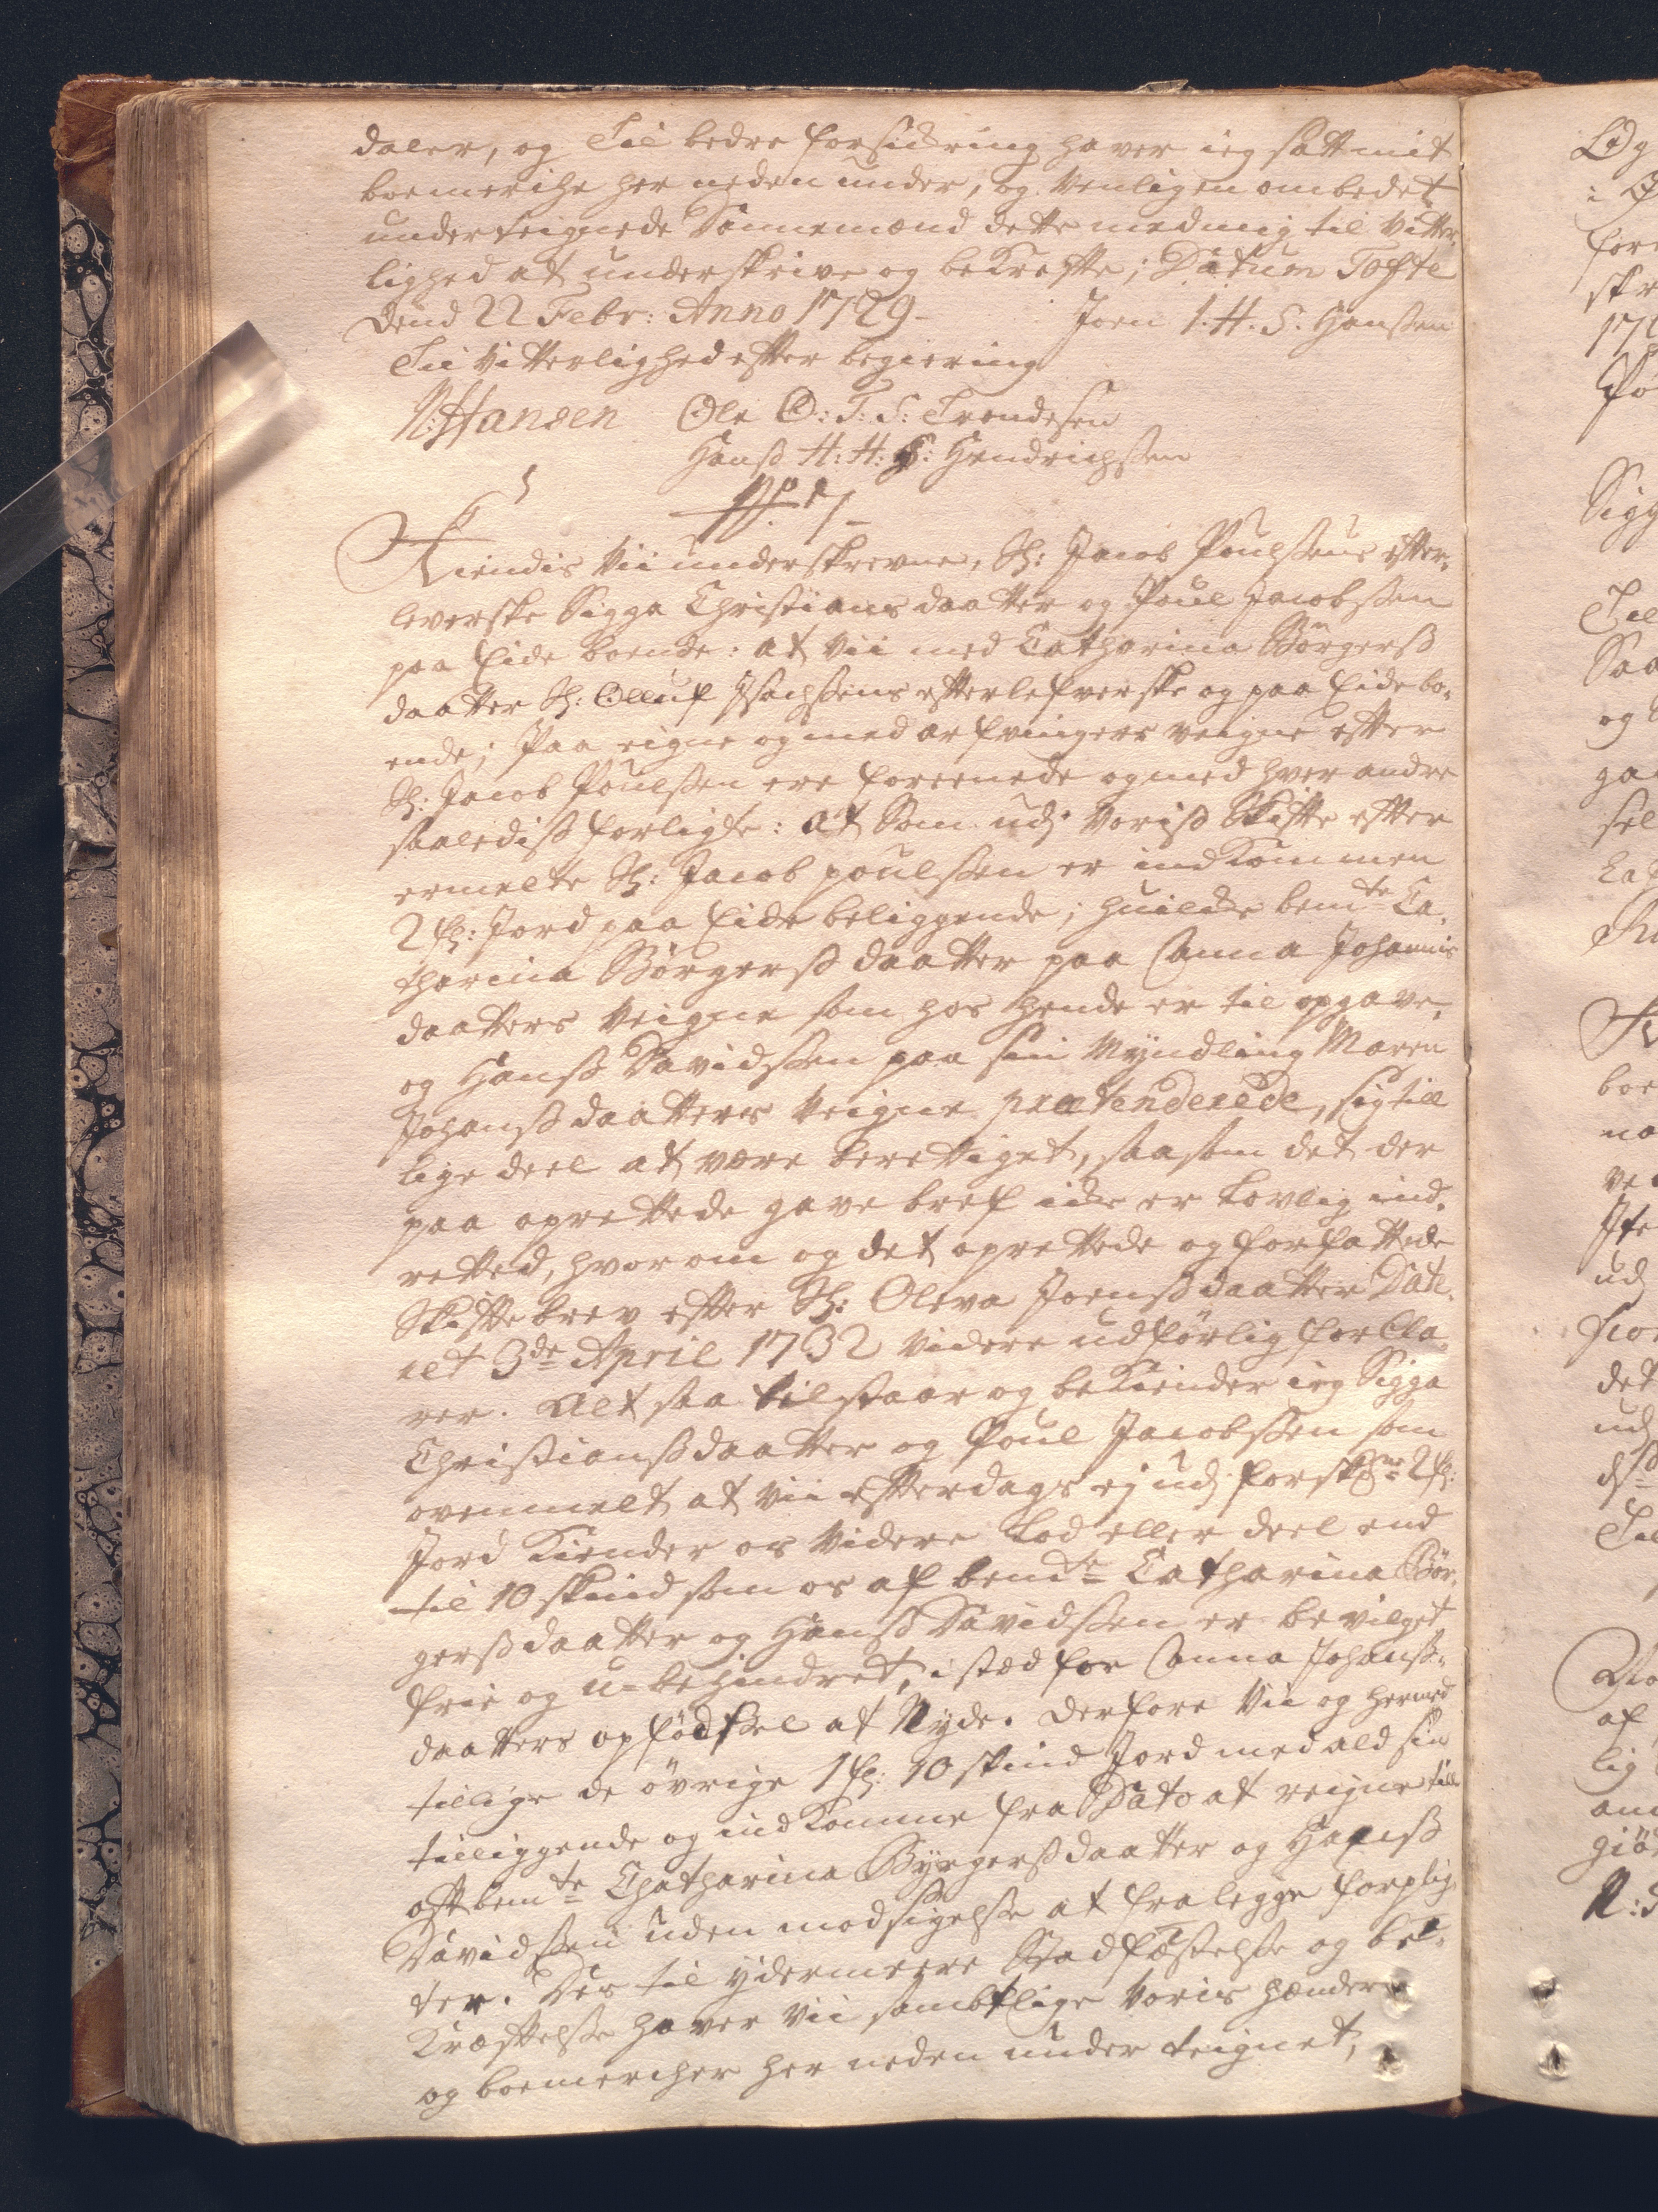 daler, og Til bedre forsickring haver ieg satt mit
boemerche her neden under, og venligen ombedet
underteignede Dannemænd dette med mig til Vitter-
lighed at underskrive og bekrefte; Datum Tofte
Dend 22 Febr: Anno 1729 - Joen I. H. S. Hanssen
Til Vitterlighed efter begiering
N: Hansen Ole O: T: S: Trondesen
Hanss H: H: S: Hendrichssen

Kiendis Vii underskrevne, Sl: Jacob Poulssens efter-
leverske Sigga Christians daatter og Poul Jacobssen
paa Eide boende: at vii med Catharina Börgerss
daatter Sl: Olluf Isachsens efterlefverske og paa Eide bo-
ende; Paa eigne og med arfvingers veigne efter
Sl: Jacob Poulssen ere foreenede og med hver andre
saalediss forligte: at Som udj Voriss Skifte efter
ermelte Sl: Jacob poulssen er indkommen
2 fl: Jord paa Eide beliggende; huilcke bemte Ca-
tharina Börgerss daatter paa Anna Johannis
daatters Veigne som hos hende er til opgave,
og Hanss Davidssen paa sin Myndling Maren
Johanss daatters Veigne prætenderede, sig till
lige deel at være berettiget, saasom det der
paa oprettede gave bref icke er Lovlig ind-
retted, hvorom og det oprettede og forfattede
Skifte brev efter Sl: Oleva Joenss daatter Date-
ret 3de April 1732 videre udförlig forkla-
rer. Alt saa tilstaar og bekiender ieg Sigga
Christianss daatter og Poul Jacobssen som
ovenmelt at vii efterdags ej udj forskr:ne 2 fl:
Jord kiender os videre Lod eller deel end
til 10 skind som os af bemte Catharina Bör-
gerss daatter og Hanss Davidssen er bevilget
frie og u-behindret, i sted for Anna Johanss-
daatters opfödssel at Nyde. Derfore Vii og hermed
tillige de övrige 1 fl: 10 skind Jord med ald sin
tilliggende og indkomme fra Dato at reigne till
oftbemte Chatharina Byrgerss daatter og Hanss
Davidssen uden modsigelsse at fralegge forplig-
ter. Des til ydermeere Stadfæstelsse og be-
kræftelsse haver Vii sambtlige Voris hænder
og boemercher her neden under teignet,